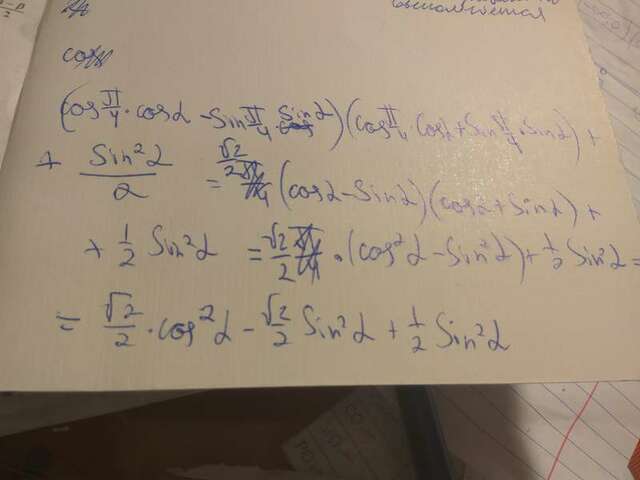 выполняется
cos
(cos π/4 · cosα - sin π/4 · sinα)(cos π/4 · cosα + sin π/4 · sinα) +
+ sin²α/2 = √2/2 (cosα - sinα)(cosα + sinα) +
+ 1/2 sin²α = √2/2 · (cos²α - sin²α) + 1/2 sin²α =
= √2/2 · cos²α - √2/2 sin²α + 1/2 sin²α